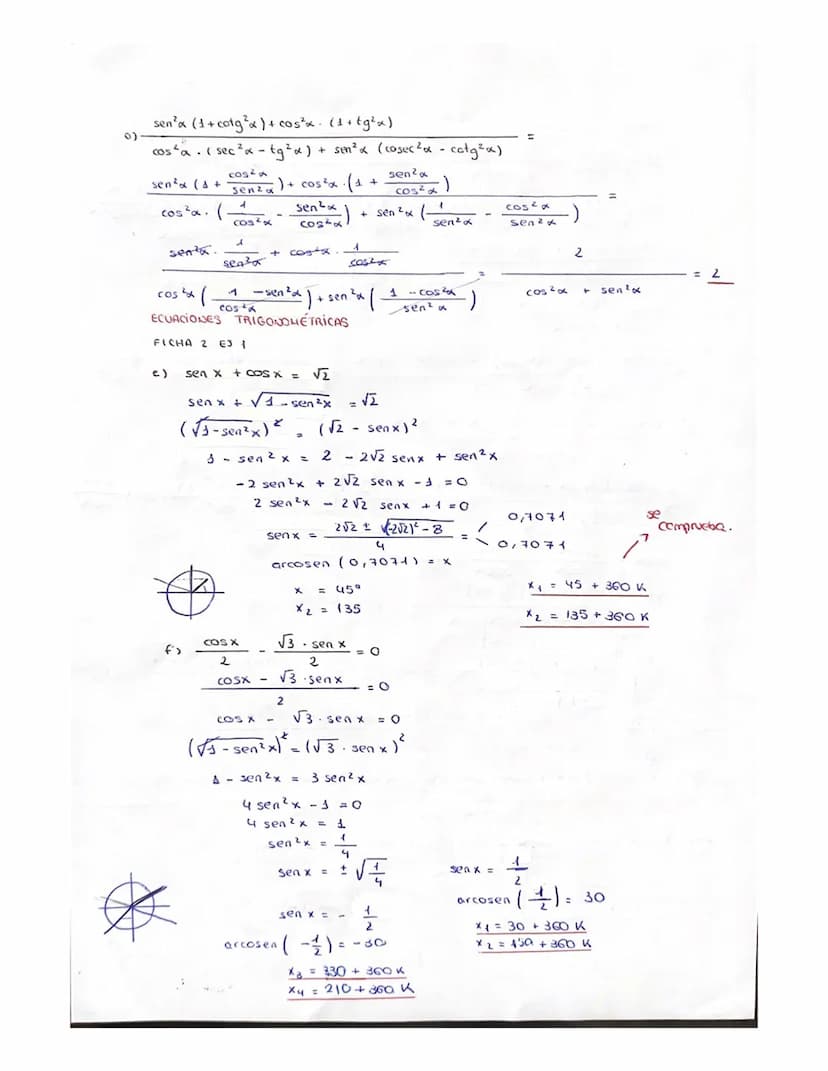 o) sen²α (1+cotg²α) + cos²α · (1+tg²α) / cos²α · (sec²α - tg²α) + sen²α (cosec²α - cotg²α) =
sen²α (1 + cos²α/sen²α) + cos²α · (1 + sen²α/cos²α) / cos²α · (1/cos²α - sen²α/cos²α) + sen²α (1/sen²α - cos²α/sen²α) =
sen²α · 1/sen²α + cos²α · 1/cos²α / cos²α (1 - sen²α/cos²α) + sen²α (1 - cos²α/sen²α) = 2 / cos²α + sen²α = 2
ECUACIONES TRIGONOMÉTRICAS
FICHA 2 EJ 1
e) sen x + cos x = √2
sen x + √1 - sen²x = √2
(√1-sen²x)² = (√2 - senx)²
1 - sen²x = 2 - 2√2 senx + sen²x
-2 sen²x + 2√2 senx - 1 = 0
2 sen²x - 2√2 senx + 1 = 0
senx = 2√2 ± √(-2√2)² - 8 / 4 = 0,7071
0,7071
se comprueba.
arcosen (0,7071) = x
x = 45°
x₂ = 135
x₁ = 45 + 360 K
x₂ = 135 + 360 K
f) cosx/2 - √3 · sen x/2 = 0
cosx - √3 · senx / 2 = 0
cos x - √3 · sen x = 0
(√1 - sen²x)² = (√3 · sen x)²
1 - sen²x = 3 sen²x
4 sen²x - 1 = 0
4 sen²x = 1
sen²x = 1/4
sen x = ± √1/4
sen x = - 1/2
arcosen (-1/2) = -30
x₃ = 330 + 360 K
x₄ = 210 + 360 K
sen x = 1/2
arcosen (1/2) = 30
x₁ = 30 + 360 K
x₂ = 150 + 360 K